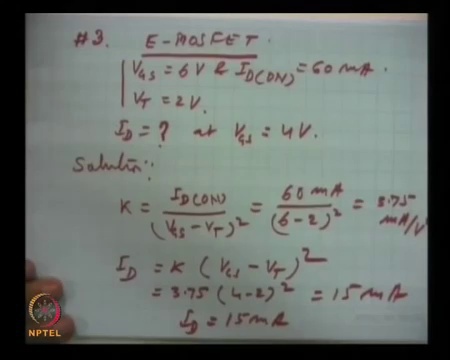 #3. E-MOSFET.
VGS = 6V & ID(ON) = 60 mA.
VT = 2V.
ID = ? at VGS = 4V.
Solution:
K = ID(ON) / (VGS - VT)^2 = 60 mA / (6-2)^2 = 3.75 mA/V
ID = K (VGS - VT)^2
= 3.75 (4-2)^2 = 15 mA
ID = 15 mA
NPTEL